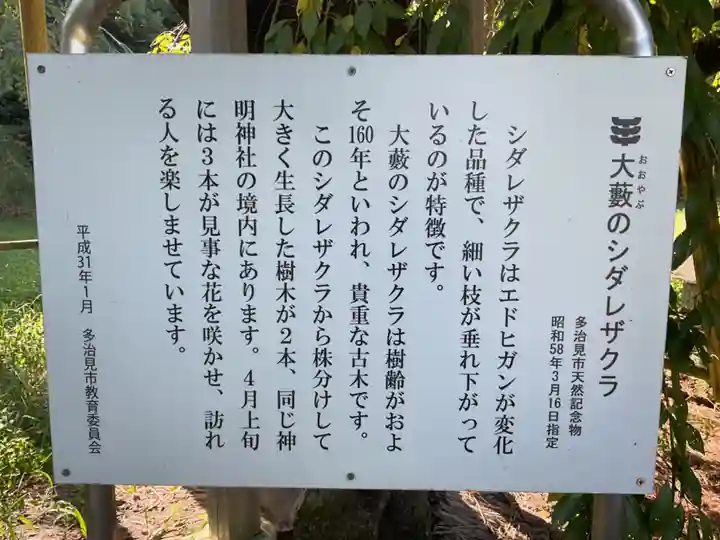 大藪のシダレザクラ
おおやぶ
多治見市天然記念物
昭和58年3月16日指定
シダレザクラはエドヒガンが変化
した品種で、細い枝が垂れ下がって
いるのが特徴です。
大藪のシダレザクラは樹齢がおよ
そ160年といわれ、貴重な古木です。
このシダレザクラから株分けして
大きく生長した樹木が2本、同じ神
明神社の境内にあります。4月上旬
には3本が見事な花を咲かせ、訪れ
る人を楽しませています。
平成31年1月　多治見市教育委員会